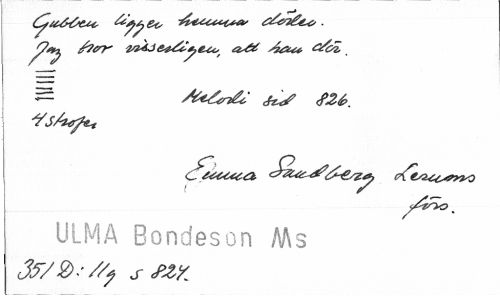 Gubben ligger hemma döder.
Jag tror visserligen, att han dör.
Melodi sid 826.
4 strofer
Emma Sandberg Lerums
förs.
ULMA Bondeson Ms
351 D: 11q s 824.